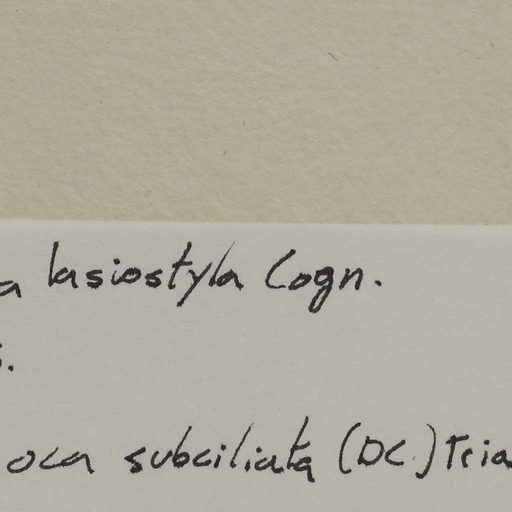 a lasiostyla Cogn.
s.
oca subciliata (DC.) Tria